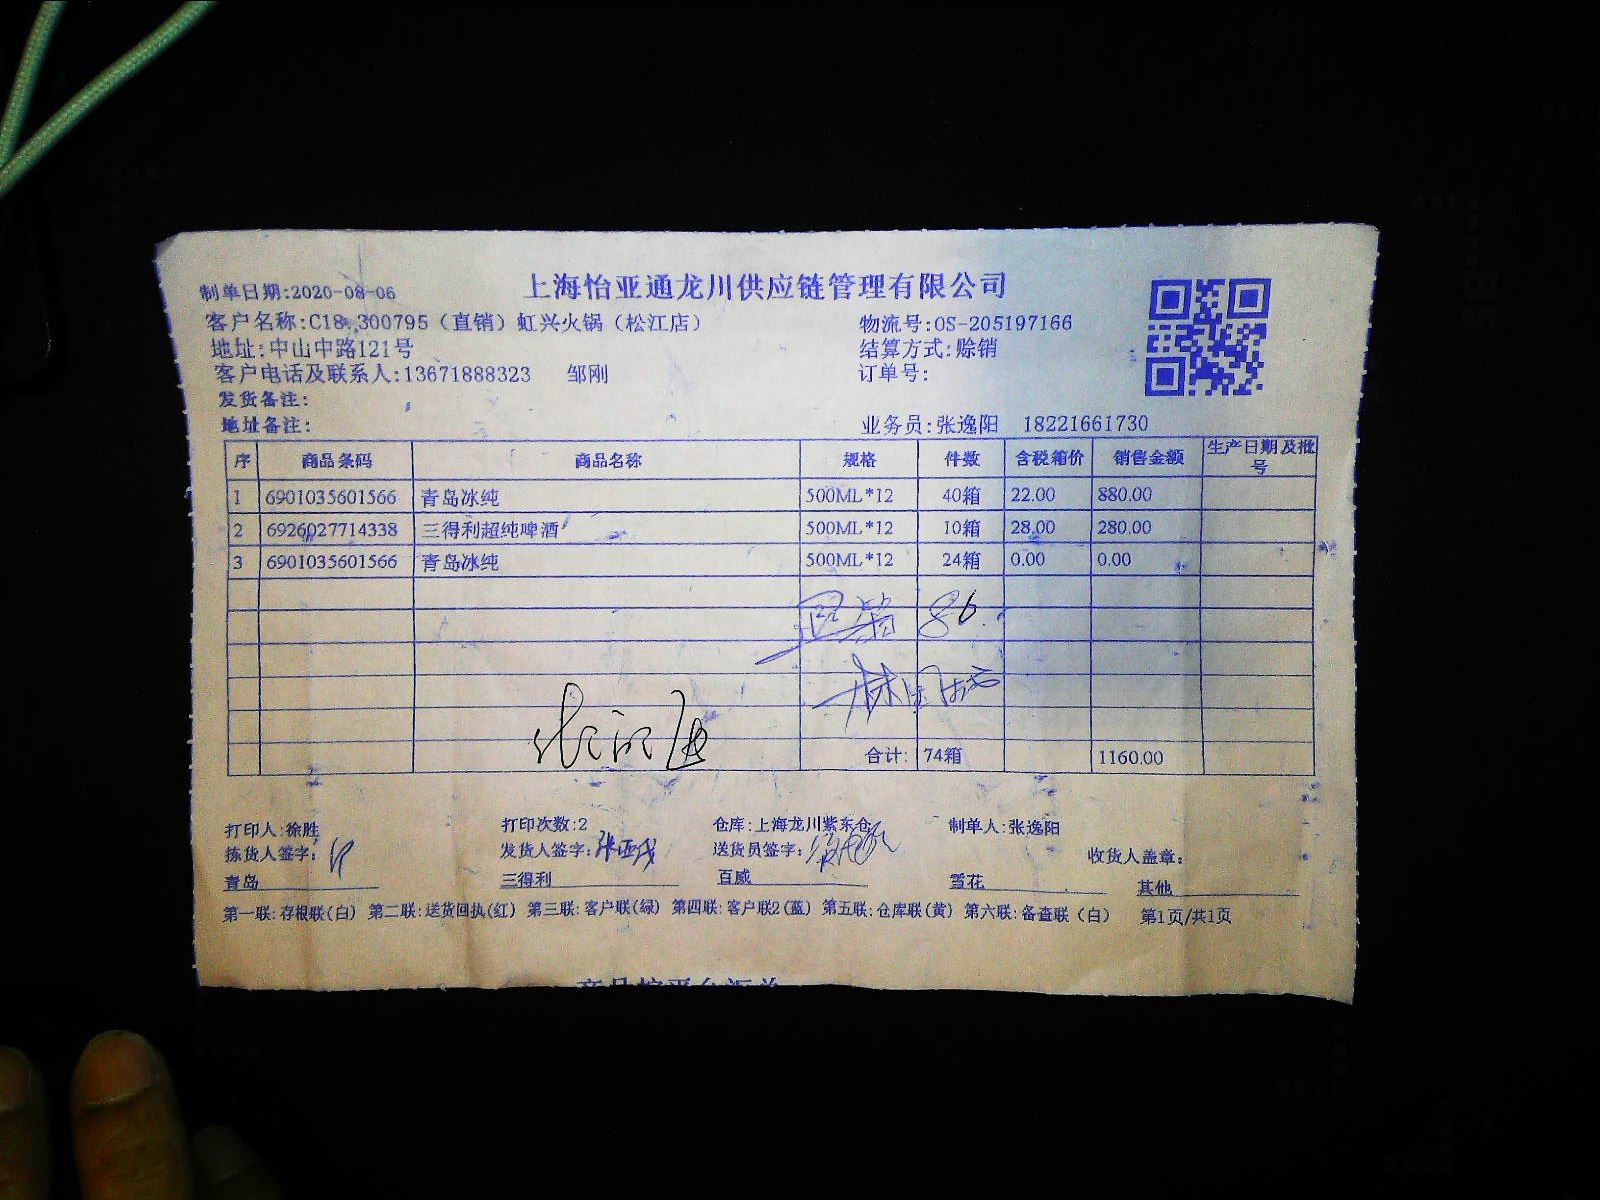 上海怡亚通龙川供应链管理有限公司
制单日期:2020-08-06
客户名称:C18 300795（直销）虹兴火锅（松江店） 物流号:OS-205197166
地址:中山中路121号 结算方式:赊销
客户电话及联系人:13671888323 邹刚 订单号:
发货备注:
地址备注: 业务员:张逸阳 18221661730
序 商品条码 商品名称 规格 件数 含税箱价 销售金额 生产日期及批号
1 6901035601566 青岛冰纯 500ML*12 40箱 22.00 880.00
2 6926027714338 三得利超纯啤酒 500ML*12 10箱 28.00 280.00
3 6901035601566 青岛冰纯 500ML*12 24箱 0.00 0.00
86.
合计: 74箱 1160.00
打印人:徐胜 打印次数:2 仓库:上海龙川紫东仓 制单人:张逸阳
拣货人签字: 发货人签字: 送货员签字: 收货人盖章:
青岛 三得利 百威 雪花 其他
第一联:存根联(白) 第二联:送货回执(红) 第三联:客户联(绿) 第四联:客户联2(蓝) 第五联:仓库联(黄) 第六联:备查联(白) 第1页/共1页